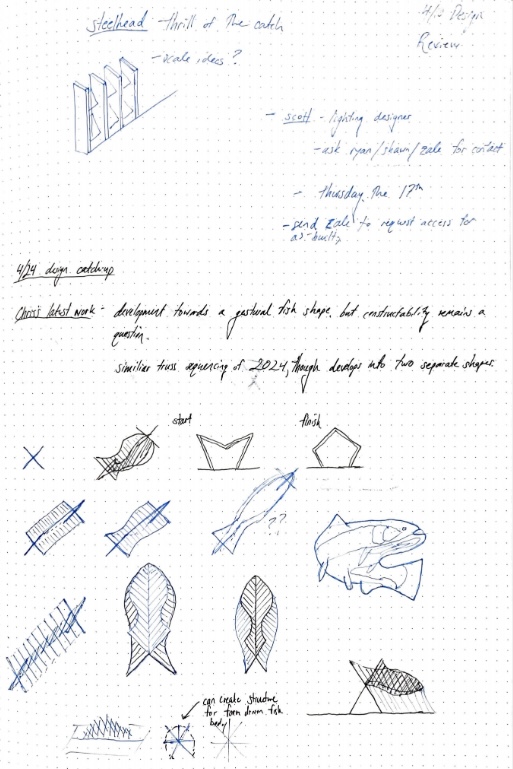 steelhead thrill of the catch
4/12 Design
Review
- scale ideas?
- scott - lighting designer
- ask ryan/shawn/zale for contact
- Thursday the 17th
- send zale to request access for
as-builts
4/24 design catch-up
Chris's latest work - development towards a gestural fish shape, but constructability remains a
question.
similiar truss sequencing of 2024, though develops into two separate shapes.
start
finish
??
can create structure
for form driven fish
body